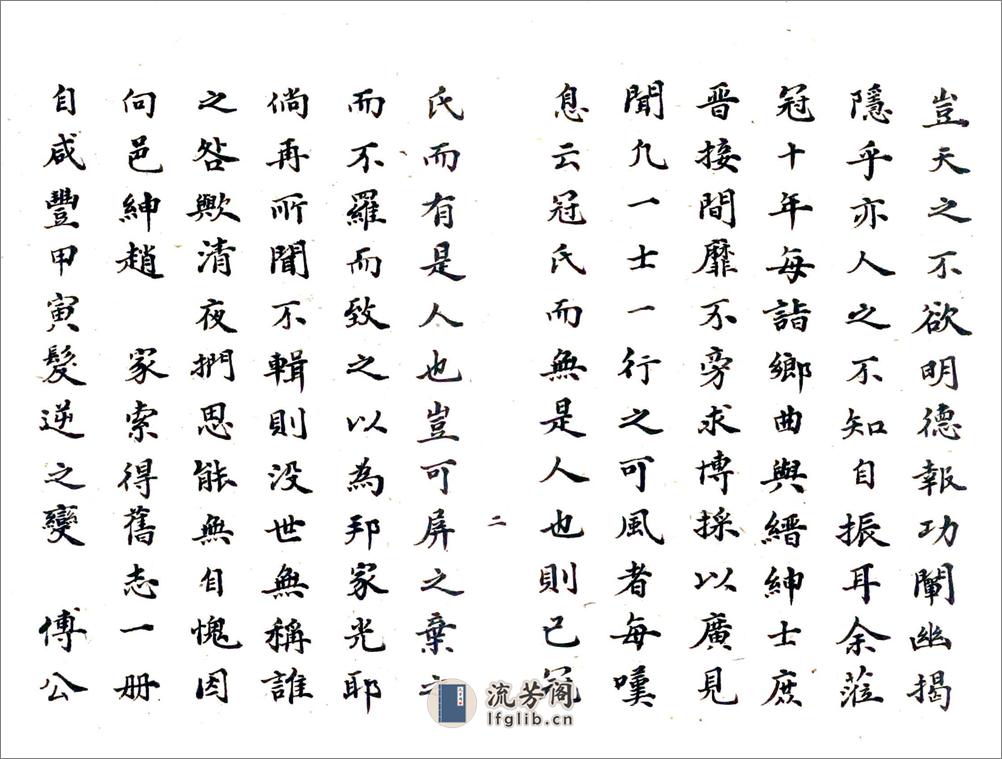 豈天之不欲明德報功闡幽揭
隱乎亦人之不知自振耳余蒞
冠十年每詣鄉曲與縉紳士庶
晋接間靡不旁求博採以廣見
聞凢一士一行之可風者每嘆
息云冠氏而無是人也則已冠
二
氏而有是人也豈可屏之棄之
而不羅而致之以為邦家光耶
倘再所聞不輯則没世無稱誰
之咎歟清夜捫思能無自愧因
向邑紳趙 家索得舊志一册
自咸豐甲寅髮逆之變 傅公
流芳阁
lfglib.cn